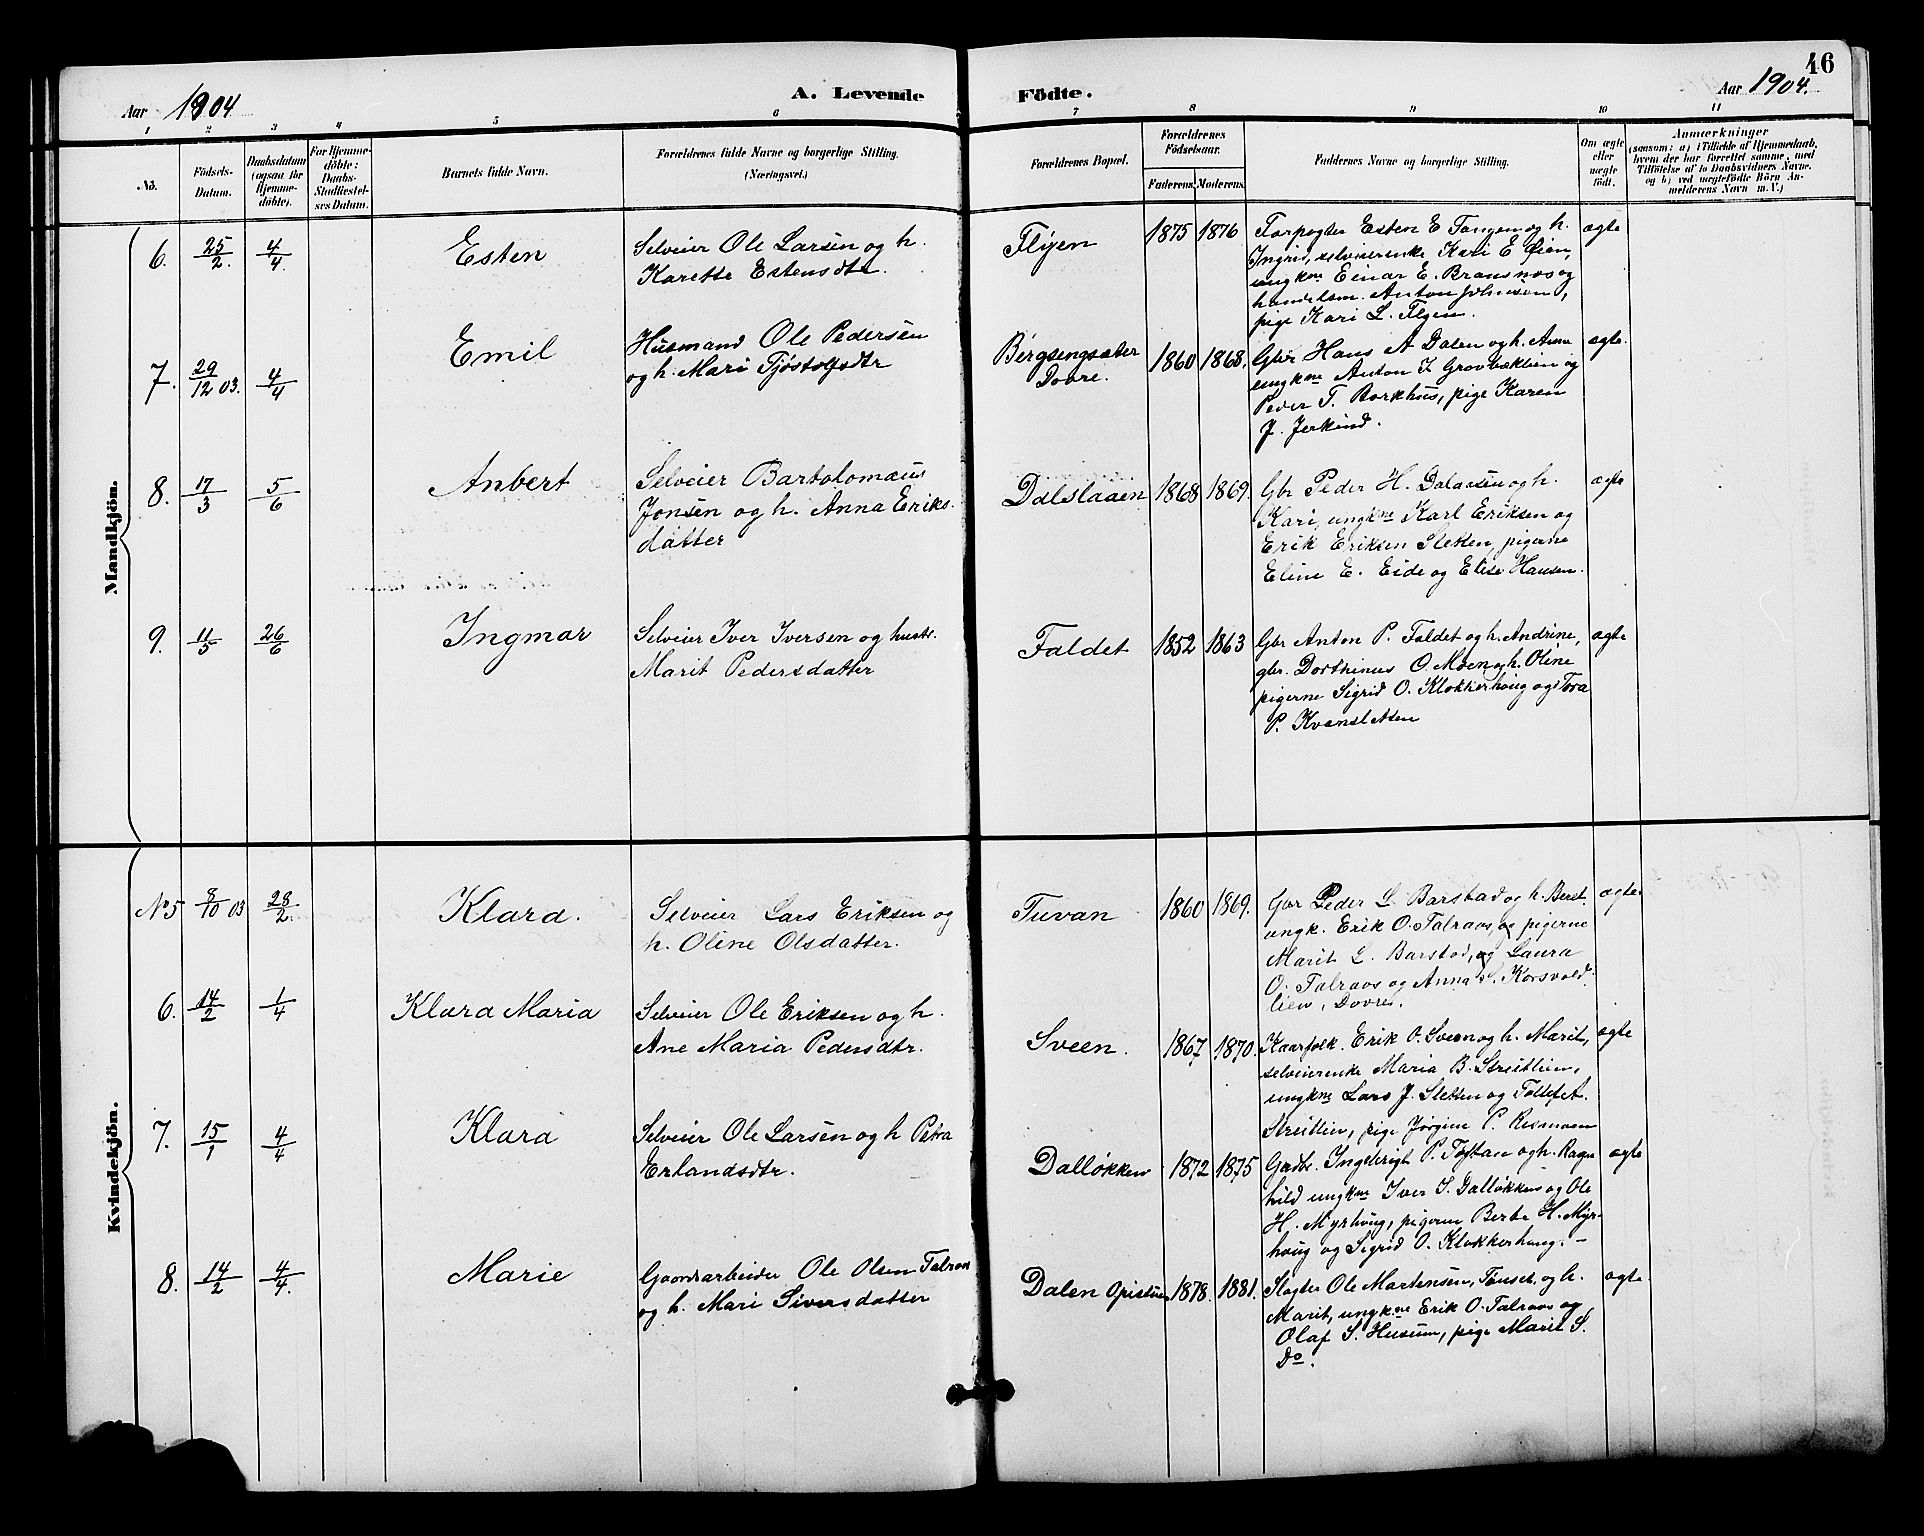 46
Aar 1904
A. Levende Födte.
Aar 1904.
1 2 3 4 5 6 7 8 9 10 11
No.
Födsels-
Datum.
Daabsdatum
(ogsaa for
Hjemme-
döbte).
For Hjemme-
döbte:
Daabs-
Stadfæstel-
ses Datum.
Barnets fulde Navn.
Forældrenes fulde Navne og borgerlige Stilling.
(Næringsvei.)
Forældrenes Bopæl.
Forældrenes
Födselsaar.
Faderens. Moderens.
Faddernes Navne og borgerlige Stilling.
Om ægte
eller
uægte
födt.
Anmærkninger
(saasom: a) i Tilfælde af Hjemmedaab,
hvem der har forrettet samme, med
Tilföielse af to Daabsvidners Navne.
og b) ved uægtefödte Börn An-
melderens Navn m. V.)
Mandkjön.
6. 25/2. 4/4.
Esten
Selveier Ole Larsen og h.
Karette Estensdtr.
Flyen
1875 1876
Forpagter Esten E Tangen og h.
Ingrid, selveierenke Kari E Øien,
ungkne Einar E. Bransnes og
handelsm. Anton Johnsen,
pige Kari L. Flyen.
ægte
7. 29/12 03. 4/4
Emil
Husmand Ole Pedersen
og h. Mari Tjøstolfsdtr
Bergsengsæter
Dovre.
1860 1868.
Gbr Hans A Dalen og h. Anne
ungkne Anton I Gravbæklien og
Peder T. Borkhus, pige Karen
J. Jerkind.
ægte.
8. 17/3 5/6
Anbert
Selveier Bartolomæus
Jonsen og h. Anna Eriks-
datter
Dalslaaen
1868 1869.
Gbr Peder H. Dalaasen og h.
Kari, ungkne Karl Eriksen og
Erik Eriksen Sletten, pigerne
Eline E. Eide og Elise Hansen.
ægte
9. 11/5 26/6
Ingmar
Selveier Iver Iversen og hustr.
Marit Pedersdatter
Faldet
1852 1863
Gbr Anton P. Faldet og h. Andrine,
gbr. Dorthinus O. Moen og h. Oline
pigerne Sigrid O. Klokkerhaug og Tora
P. Kvernsletten
ægte
Kvindekjön.
No 5 8/10 03 28/2.
Klara.
Selveier Lars Eriksen og
h. Oline Olsdatter.
Tuvan
1860 1869.
Gbr Peder L. Barstad og h. Beret.
ungk. Erik O. Talraas, og pigerne
Marit L. Barstad, og Laura
O. Talraas og Anna S. Korsvold-
lien, Dovre.
ægte
6. 14/2 1/4
Klara Maria
Selveier Ole Eriksen og h.
Ane Maria Pedersdtr.
Sveen.
1867 1870.
Kaarfolk. Erik O. Sveen og h. Marit,
selveierenke Maria B. Streitlien,
ungkne Lars J. Sletten og Tollef At.
Streitlien, pige Jørgine P.
ægte
7. 15/1 4/4
Klara
Selveier Ole Larsen og h Petra
Erlandsdtr.
Dalløkken
1872 1875
Gaardbr. Ingebrigt P. og h. Ragn
hild ungkne Iver I. Dalløkken og Ole
H. Myrhaug, pigerne Berte H. Myr-
haug og Sigrid O. Klokkerhaug. -
ægte
8. 14/2 4/4.
Marie
Gaardsarbeider Ole Olsen Talraas
og h. Mari Siversdatter
Dalen Opistuen
1878. 1881.
Slagter Ole Martensen, Tønset, og h.
Marit, ungkne Erik O. Talraas og
Olaf S. Husum, pige Marit S.
Do.
ægte.